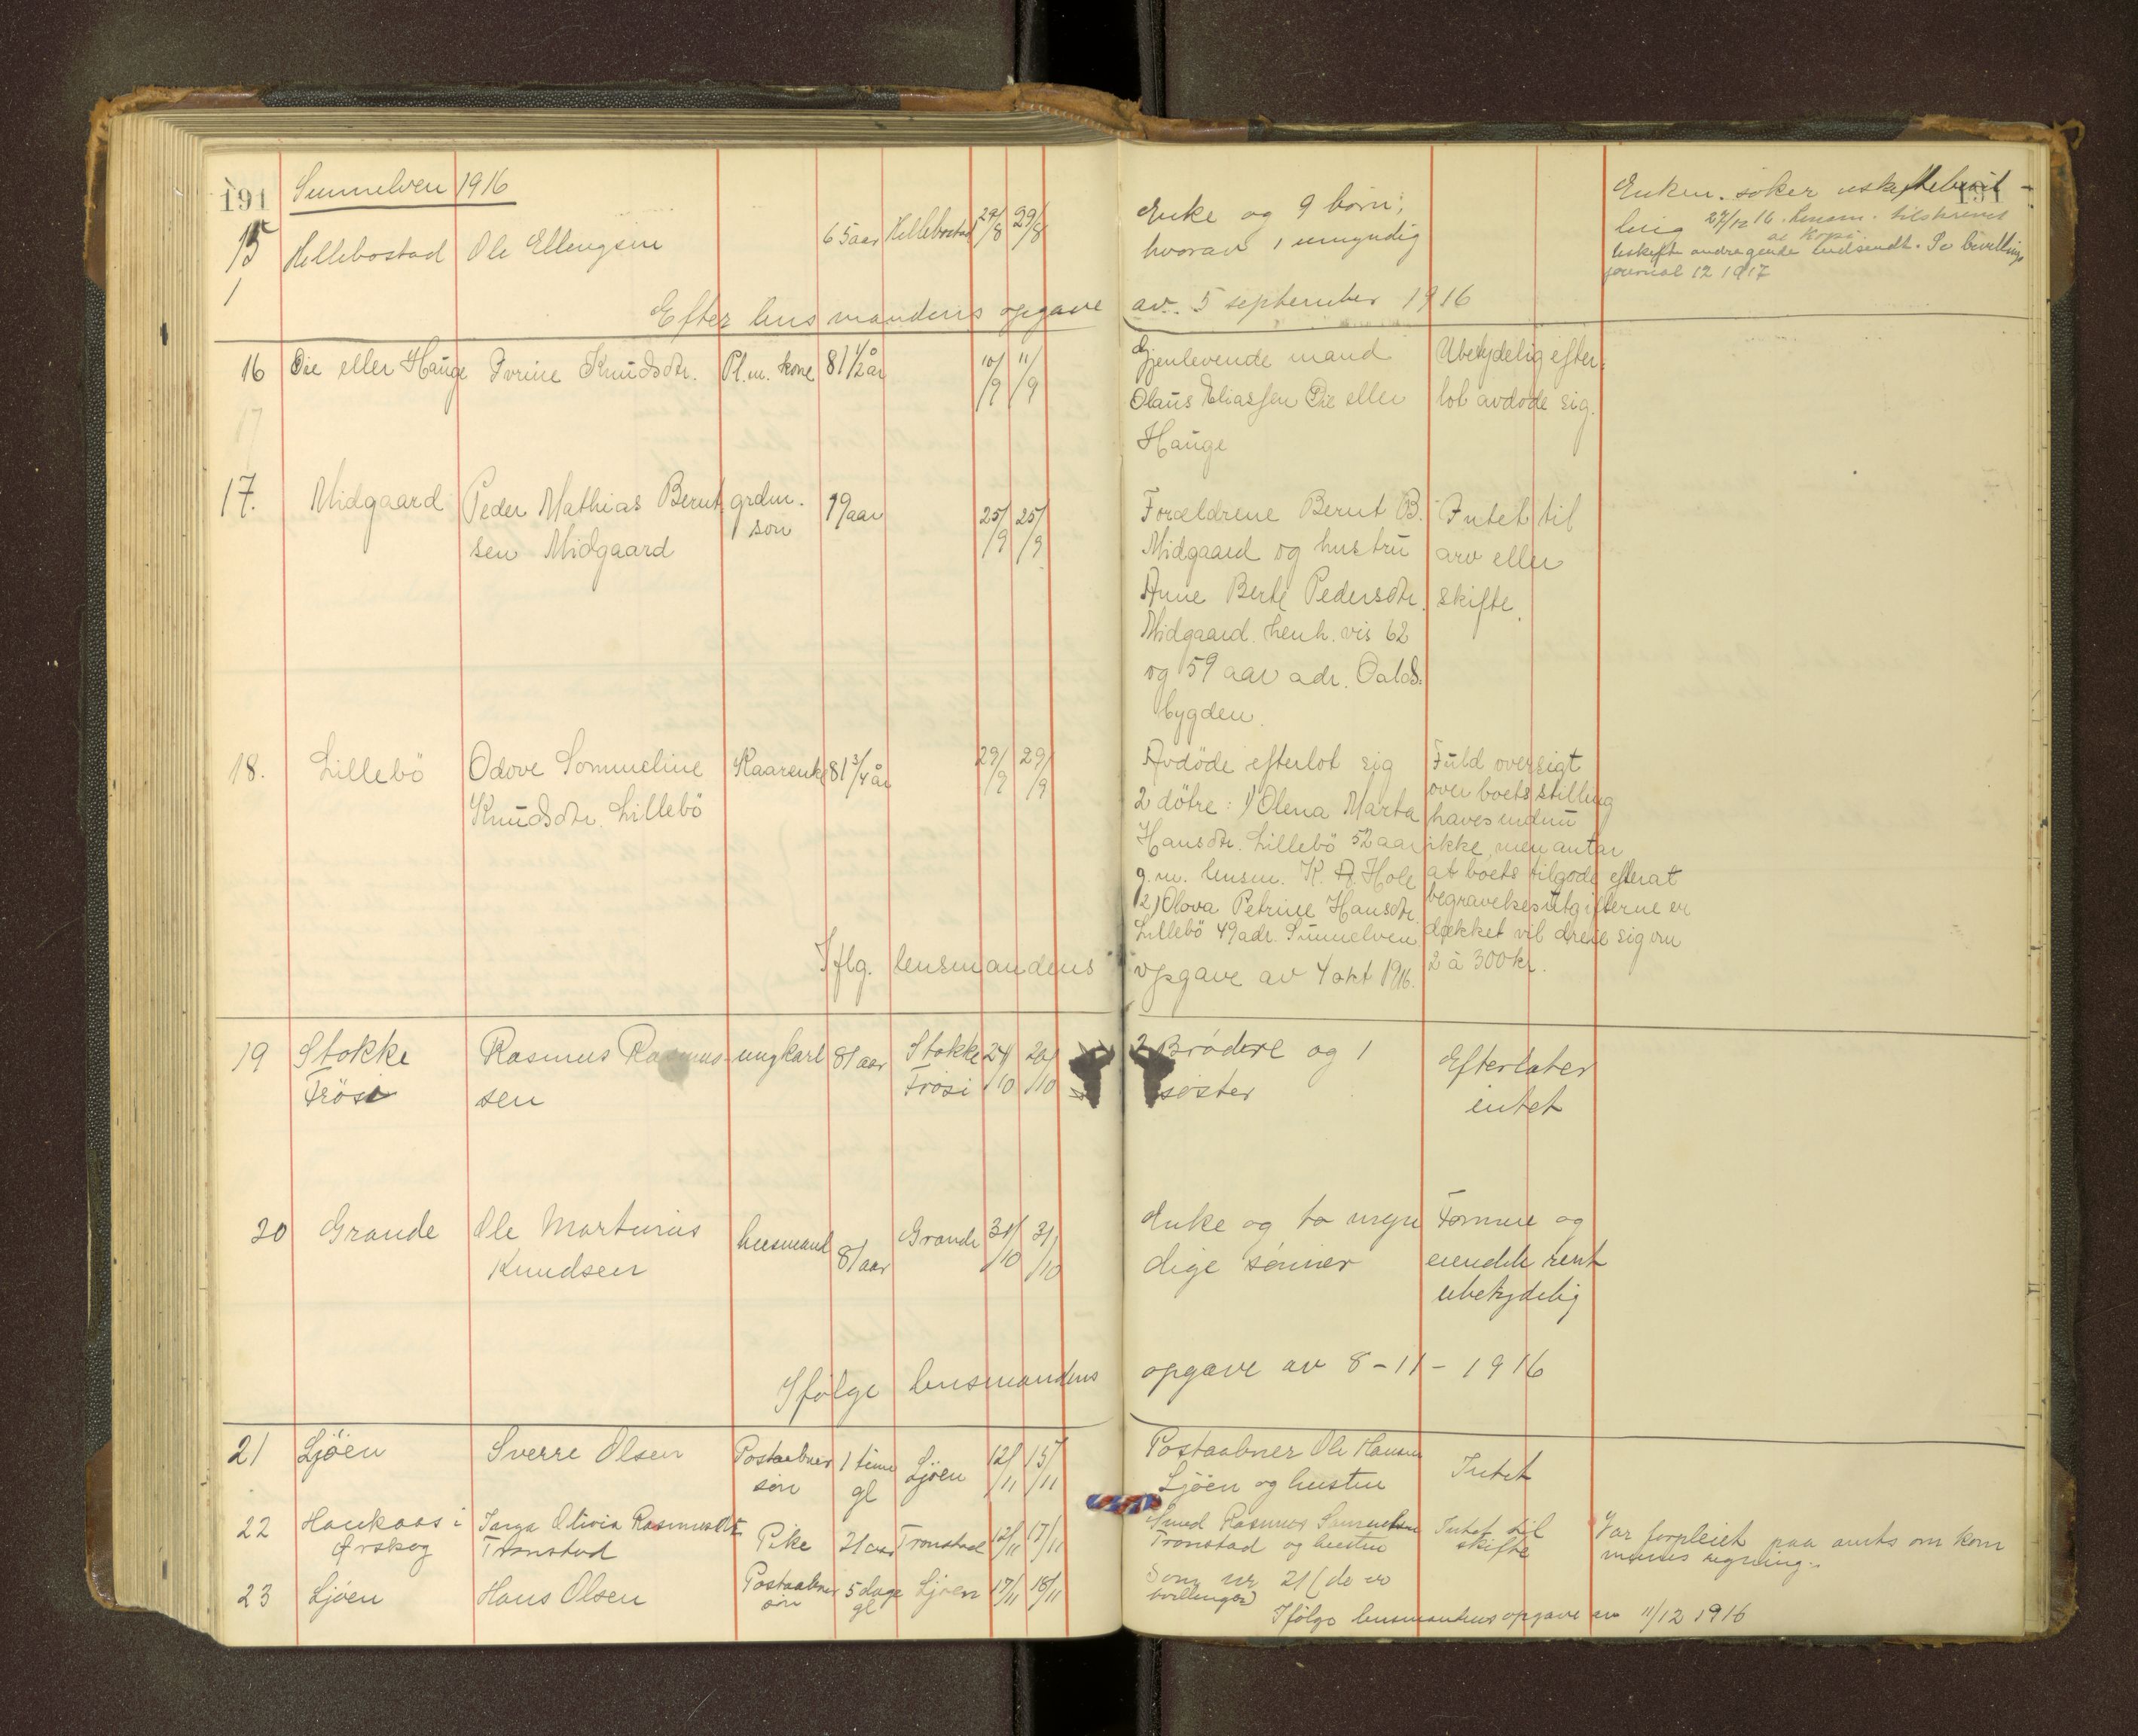 191
Sunnelven 1916
15 Hellebostad Ole Ellengsen 65 aar Hellebostad 29/8 29/8
1
Enke og 9 børn;
hvorav 1 umyndig
Enken søker uskiftebevil-
ling 27/12 16. Lensm. tilskrives
uskifte andragende indsendt. Se bevillings
journal 12 1917
191
Efter lensmandens opgave av 5 september 1916
16 Øie eller Hauge Ivrine Knudsdtr. Pl.m. kone 81 1/2 år 10/9 11/9
Gjenlevende mand
Olaus Eliassen Øie eller
Hauge
Ubetydelig efter-
lot avdøde sig.
17
17. Midgaard Peder Mathias Bernt
sen Midgaard
grdm.
søn
19 aar 25/9 25/9
Forældrene Bernt B.
Midgaard og hustru
Anne Berte Pedersdtr.
Midgaard. henh. vis 62
og 59 aar adr. Oalds-
bygden.
Intet til
arv eller
skifte.
18. Lillebö Odove Sommeline
Knudsdtr. Lillebö
Kaarenke 81 3/4 år 29/9 29/9
Avdöde efterlot sig
2 dötre: 1) Olena Marta
Hansdtr. Lillebö 52 aar
g.m. lensm. K. A. Hole
2) Olova Petrine Hansdtr.
Lillebö 49 adr. Sunnelven
Fuld oversigt
over boets stilling
haves endnu
ikke, men antar
at boets tilgode efterat
begravelsesutgifterne er
dækket vil dreie sig om
2 à 300 kr.
Iflg. lensmandens opgave av 4 okt 1916.
19 Stokke
Frösi
Rasmus Rasmus-
sen
ungkarl 81 aar Stokke
Frøsi
24/10 26/10
2 Brödre og 1
søster
Efterlater
intet
20 Grande Ole Martinius
Knudsen
husmand 81 aar Grande 31/10 31/10
Enke og to myn
dige sønner
Formue og
eiendele rent
ubetydelig
Ifølge lensmandens opgave av 8-11-1916
21 Ljöen Sverre Olsen Postaabner
søn
1 time
gl
Ljøen 12/11 15/11
Postaabner Ole Hansen
Ljöen og hustru
Intet
22 Haukaas i
Ørskog
Inga Olivia Rasmusdtr
Tronstad
Pike 21 aar Tronstad 12/11 17/11
Smed Rasmus
Tronstad og hustru
Intet til
skifte
Var forpleiet paa amts om kom
munes regning.
23 Ljöen Hans Olsen Postaabner
søn
5 dage
gl
Ljøen 17/11 18/11
Som nr 21 (de er
tvillinger)
Ifølge lensmandens opgave av 11/12 1916